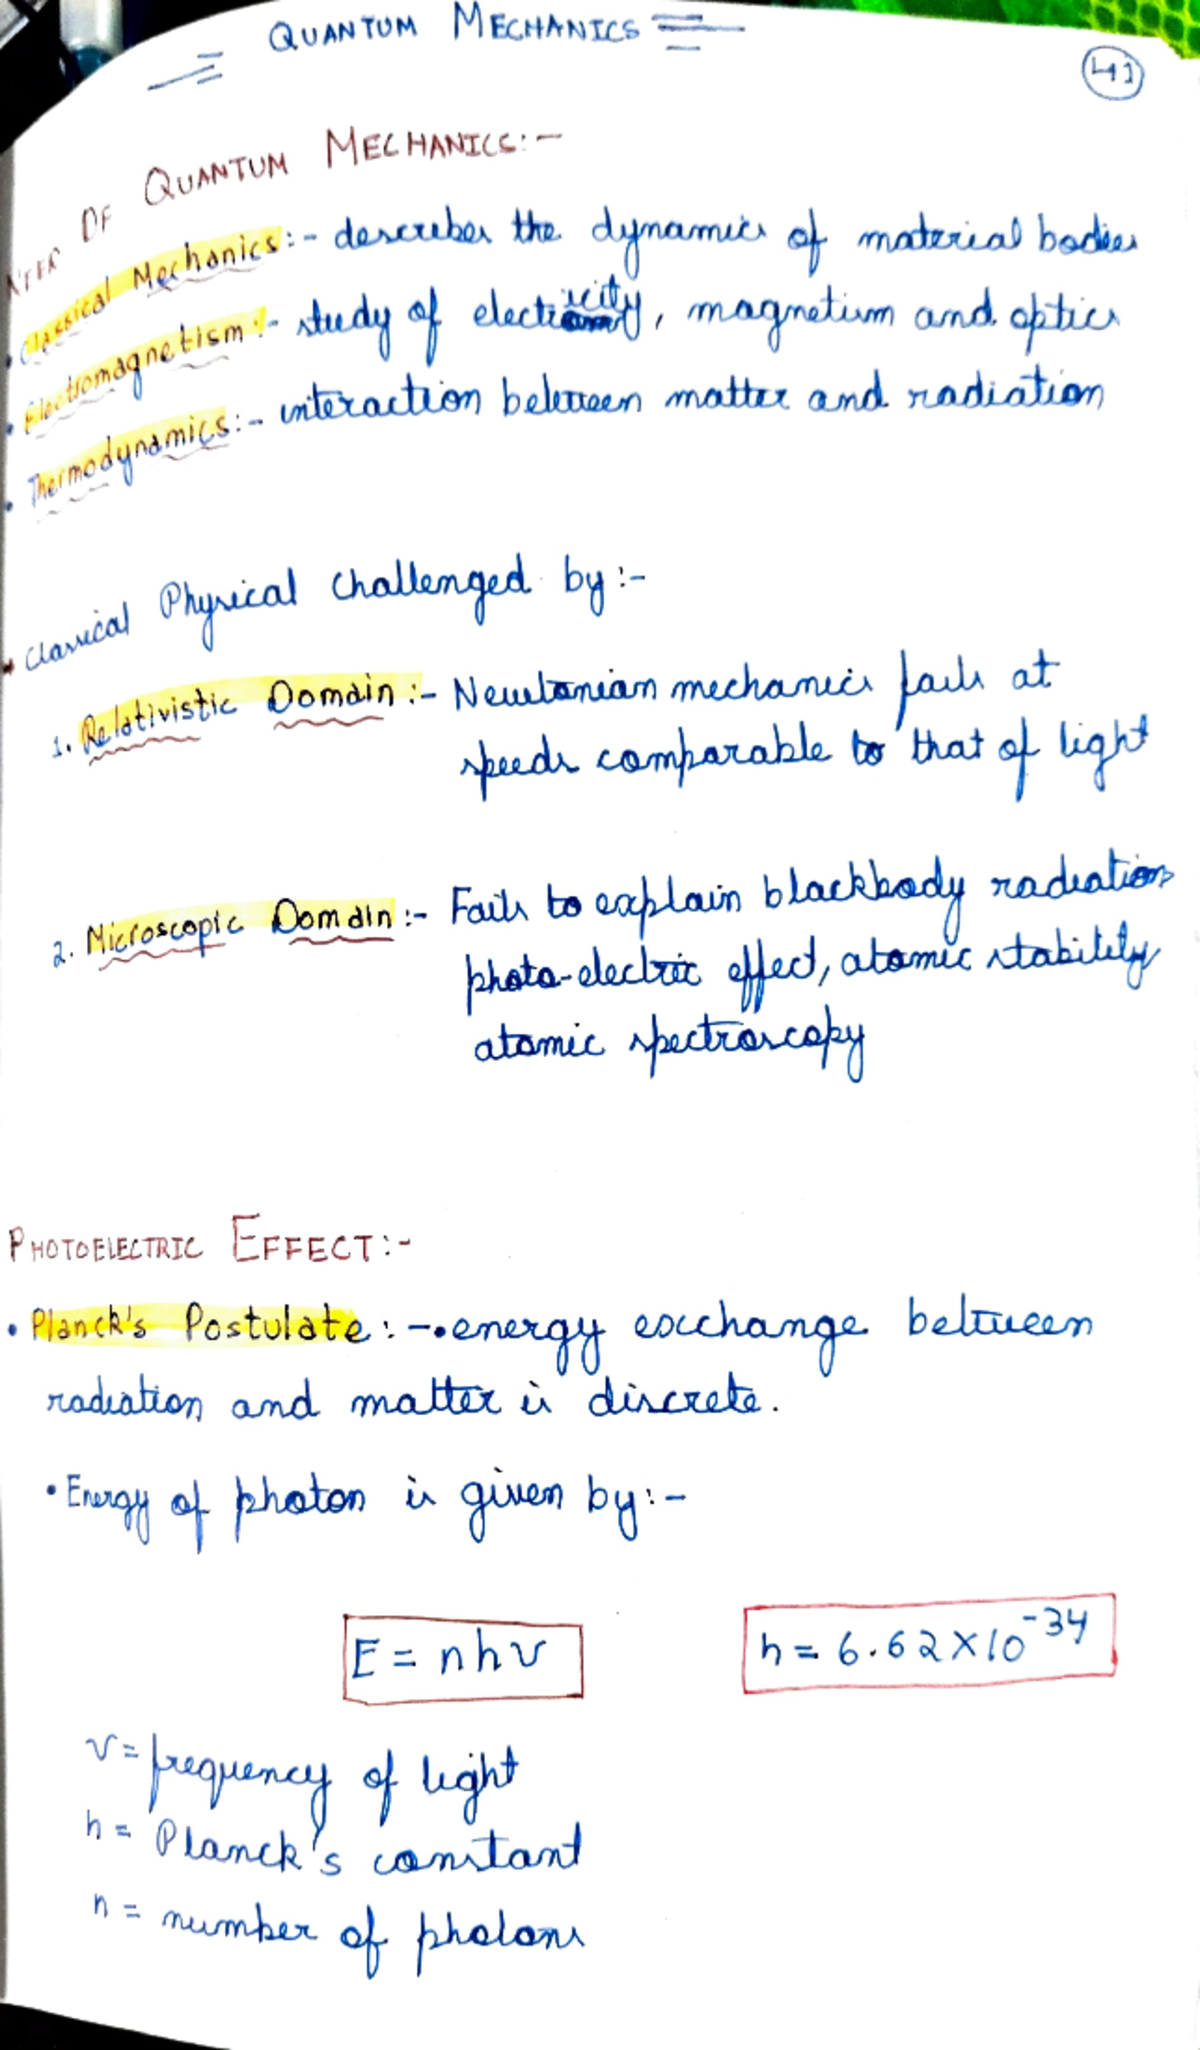 QUANTUM MECHANICS
41
OF QUANTUM MECHANICS:-
• Classical Mechanics:- describes the dynamics of material bodies
• Electromagnetism:- study of electricity, magnetism and optics
• Thermodynamics:- interaction between matter and radiation
Classical Physical Challenged by:-
1. Relativistic Domain:- Newtonian mechanics fails at
speeds comparable to that of light
2. Microscopic Domain:- Fails to explain blackbody radiation,
photo-electric effect, atomic stability
atomic spectroscopy
PHOTOELECTRIC EFFECT:-
• Planck's Postulate:-•energy exchange between
radiation and matter is discrete.
• Energy of photon is given by:-
E = nhν
h = 6.62×10⁻³⁴
ν = frequency of light
h = Planck's constant
n = number of photons